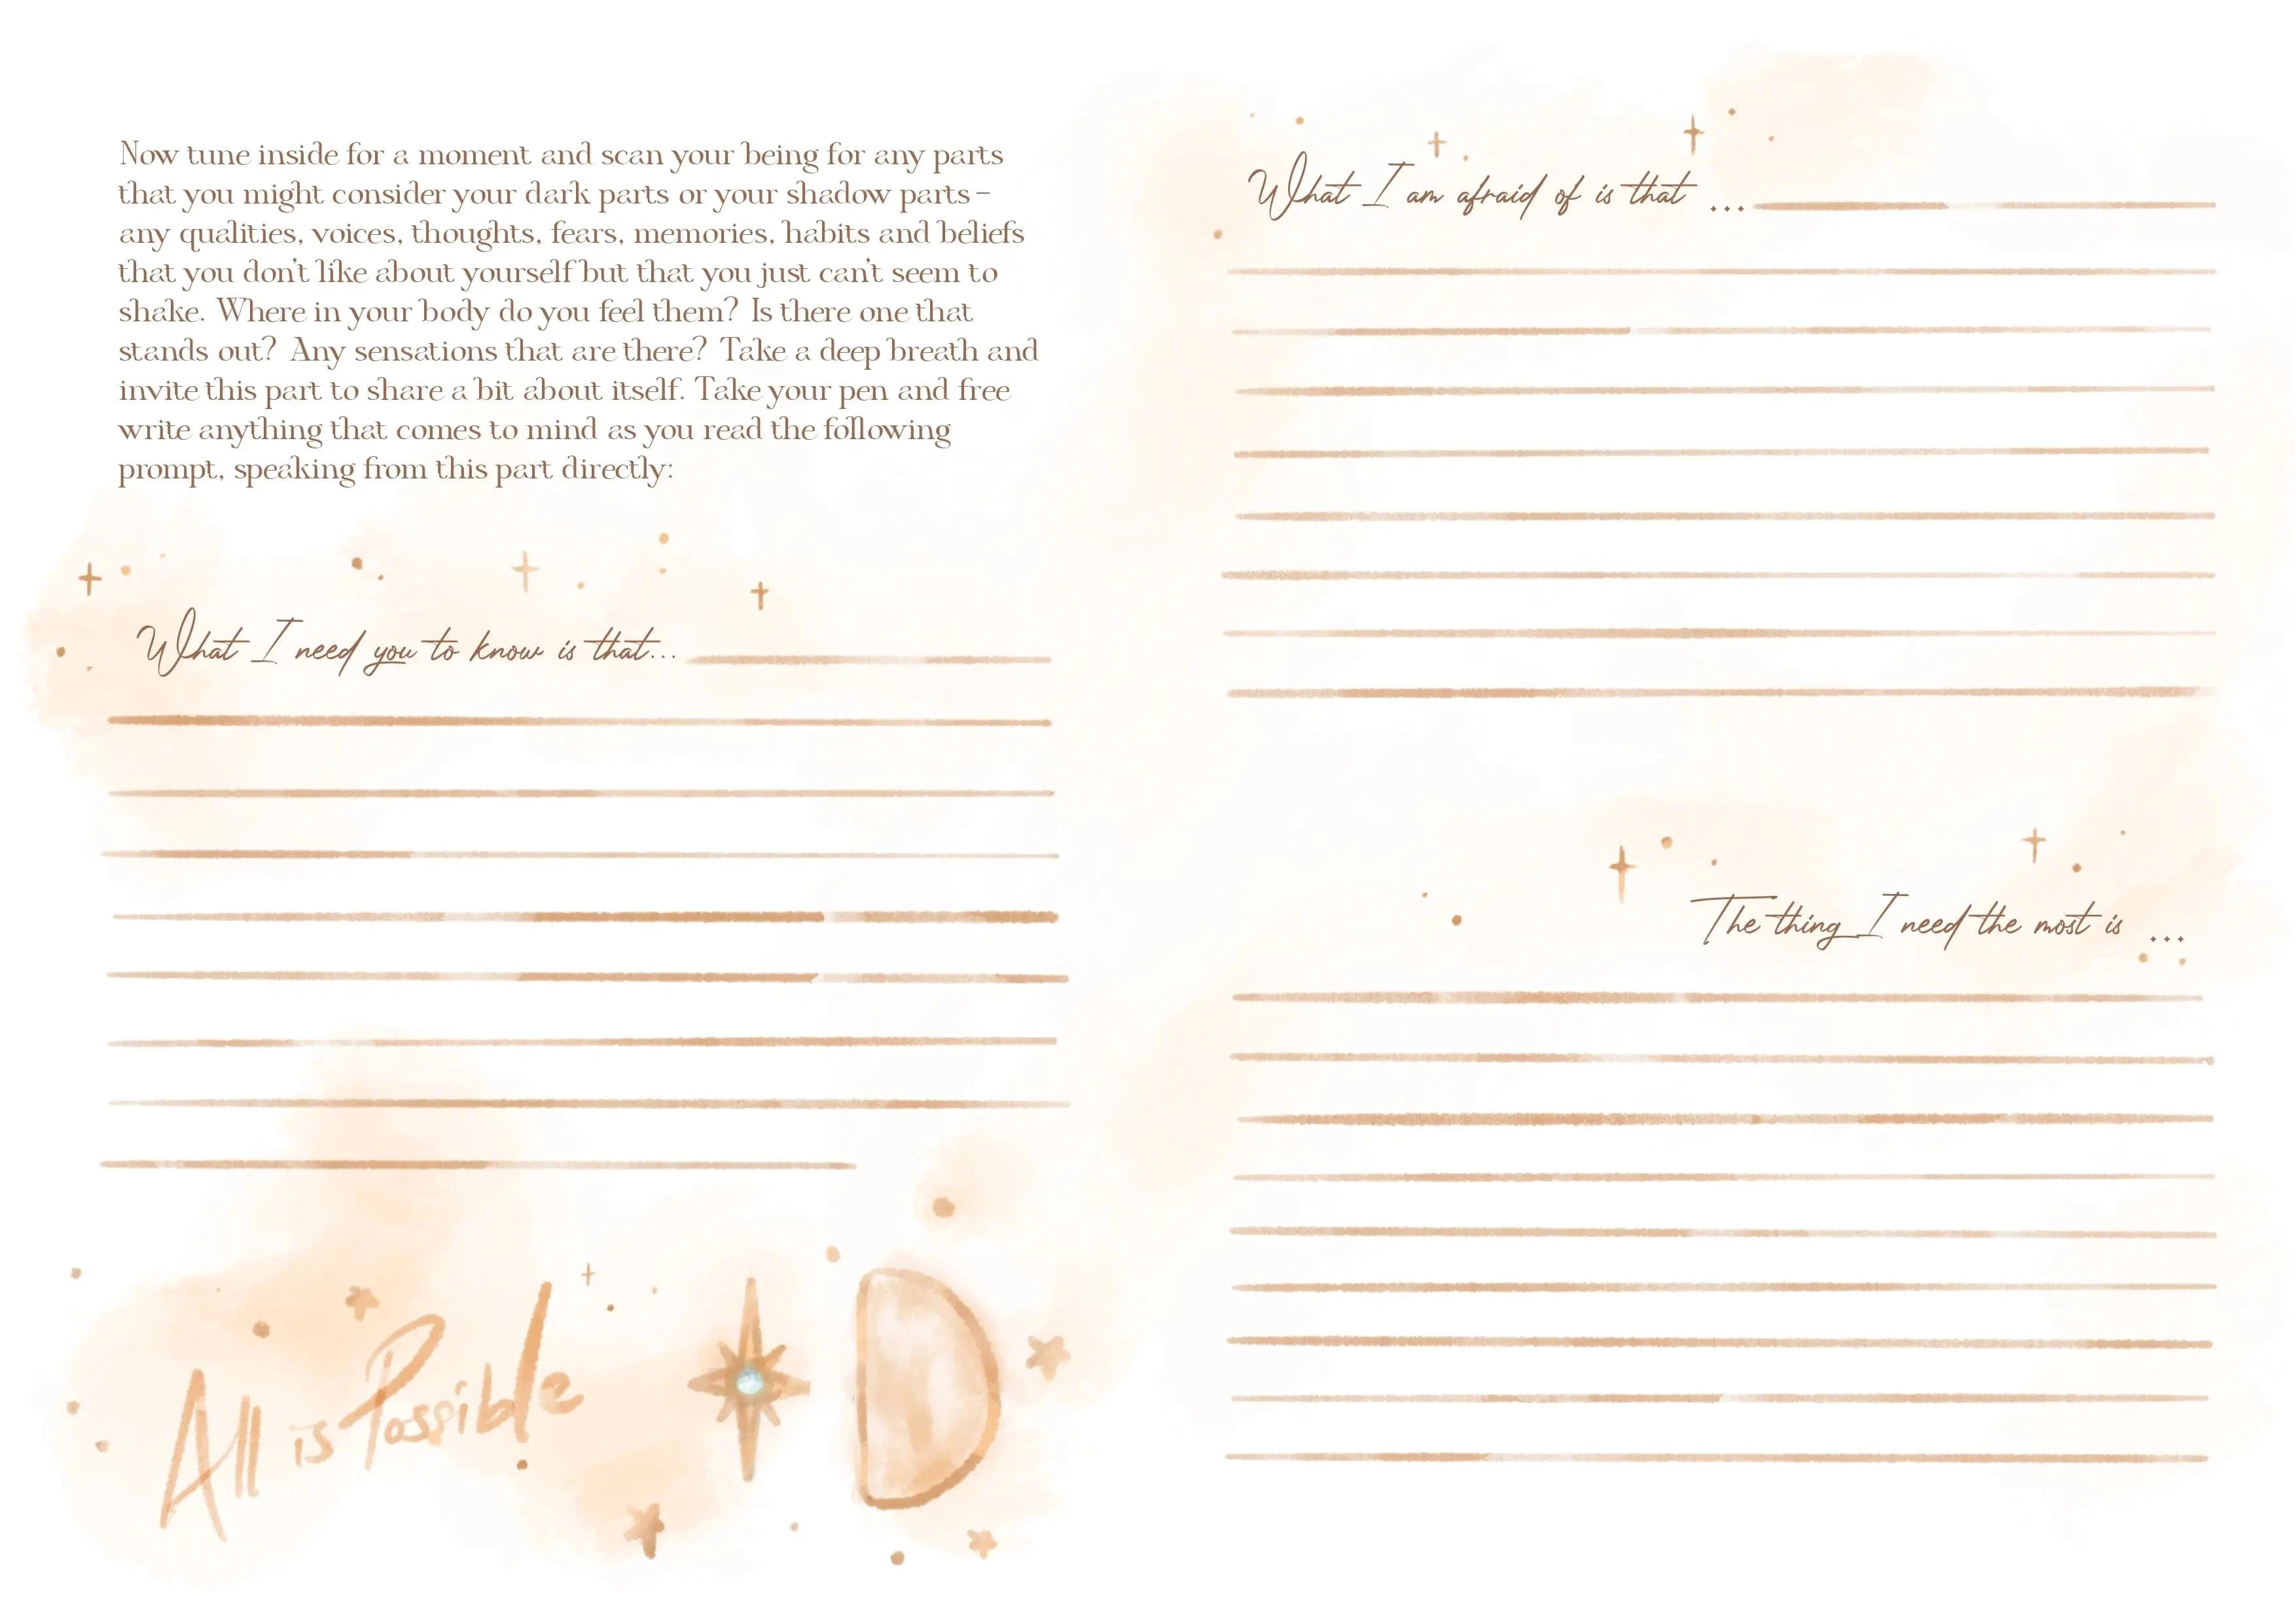 Now tune inside for a moment and scan your being for any parts
that you might consider your dark parts or your shadow parts –
any qualities, voices, thoughts, fears, memories, habits and beliefs
that you don't like about yourself but that you just can't seem to
shake. Where in your body do you feel them? Is there one that
stands out? Any sensations that are there? Take a deep breath and
invite this part to share a bit about itself. Take your pen and free
write anything that comes to mind as you read the following
prompt, speaking from this part directly:
What I need you to know is that...
All is Possible
What I am afraid of is that ...
The thing I need the most is ...